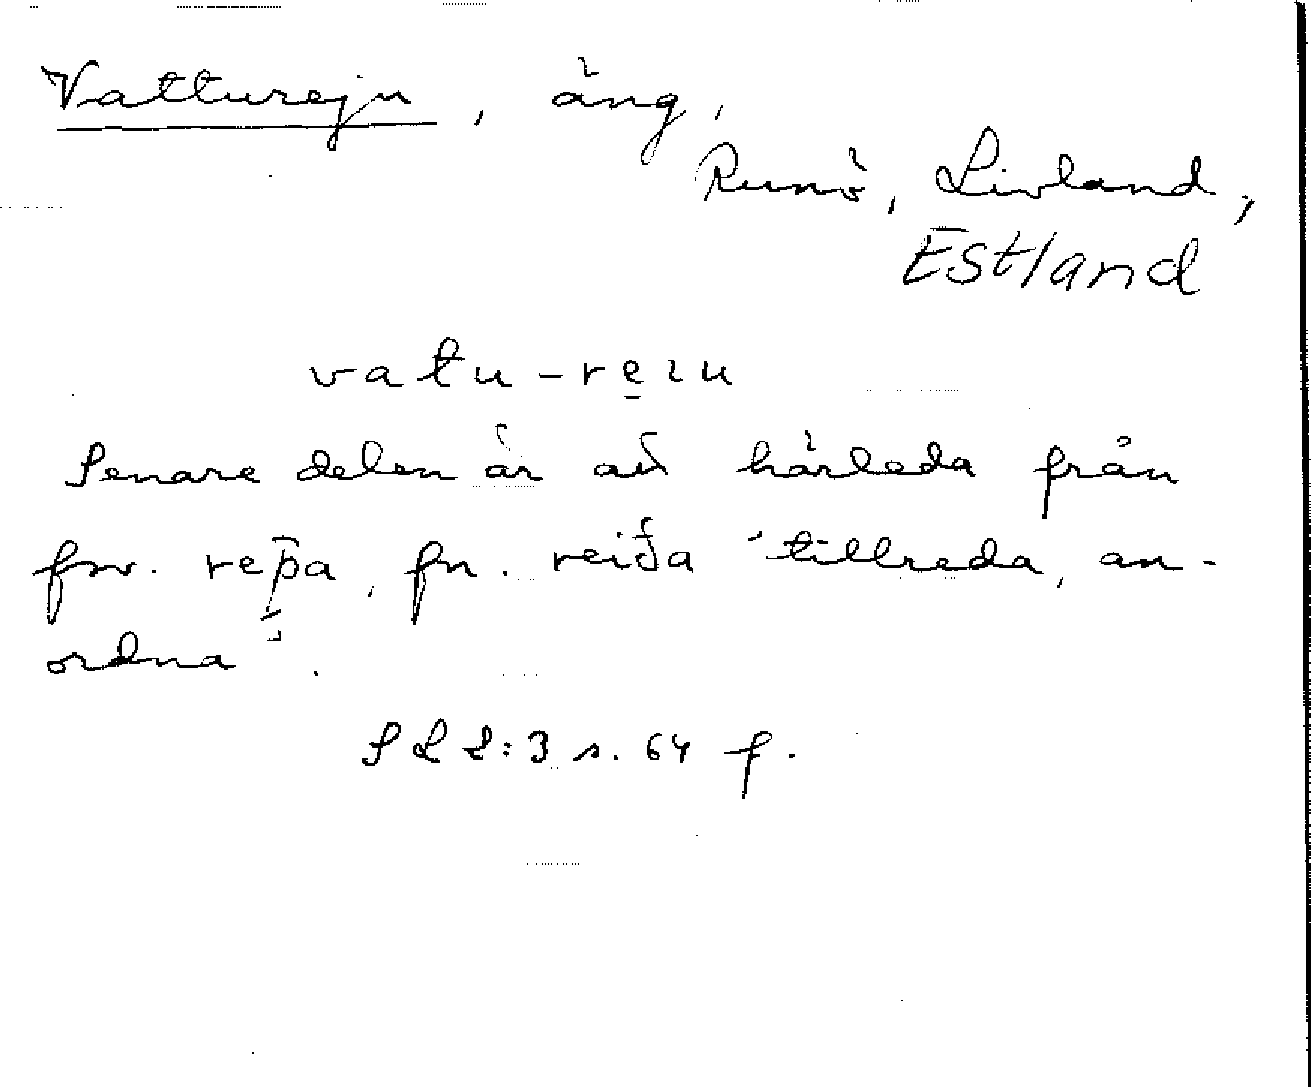 Vattureju, äng,
Runö, Livland,
Estland
vatu-reıu
Senare delen är att härleda från
fsv. reþa, fn. reiða 'tillreda, an-
ordna'.
SLS:3 s. 64 f.